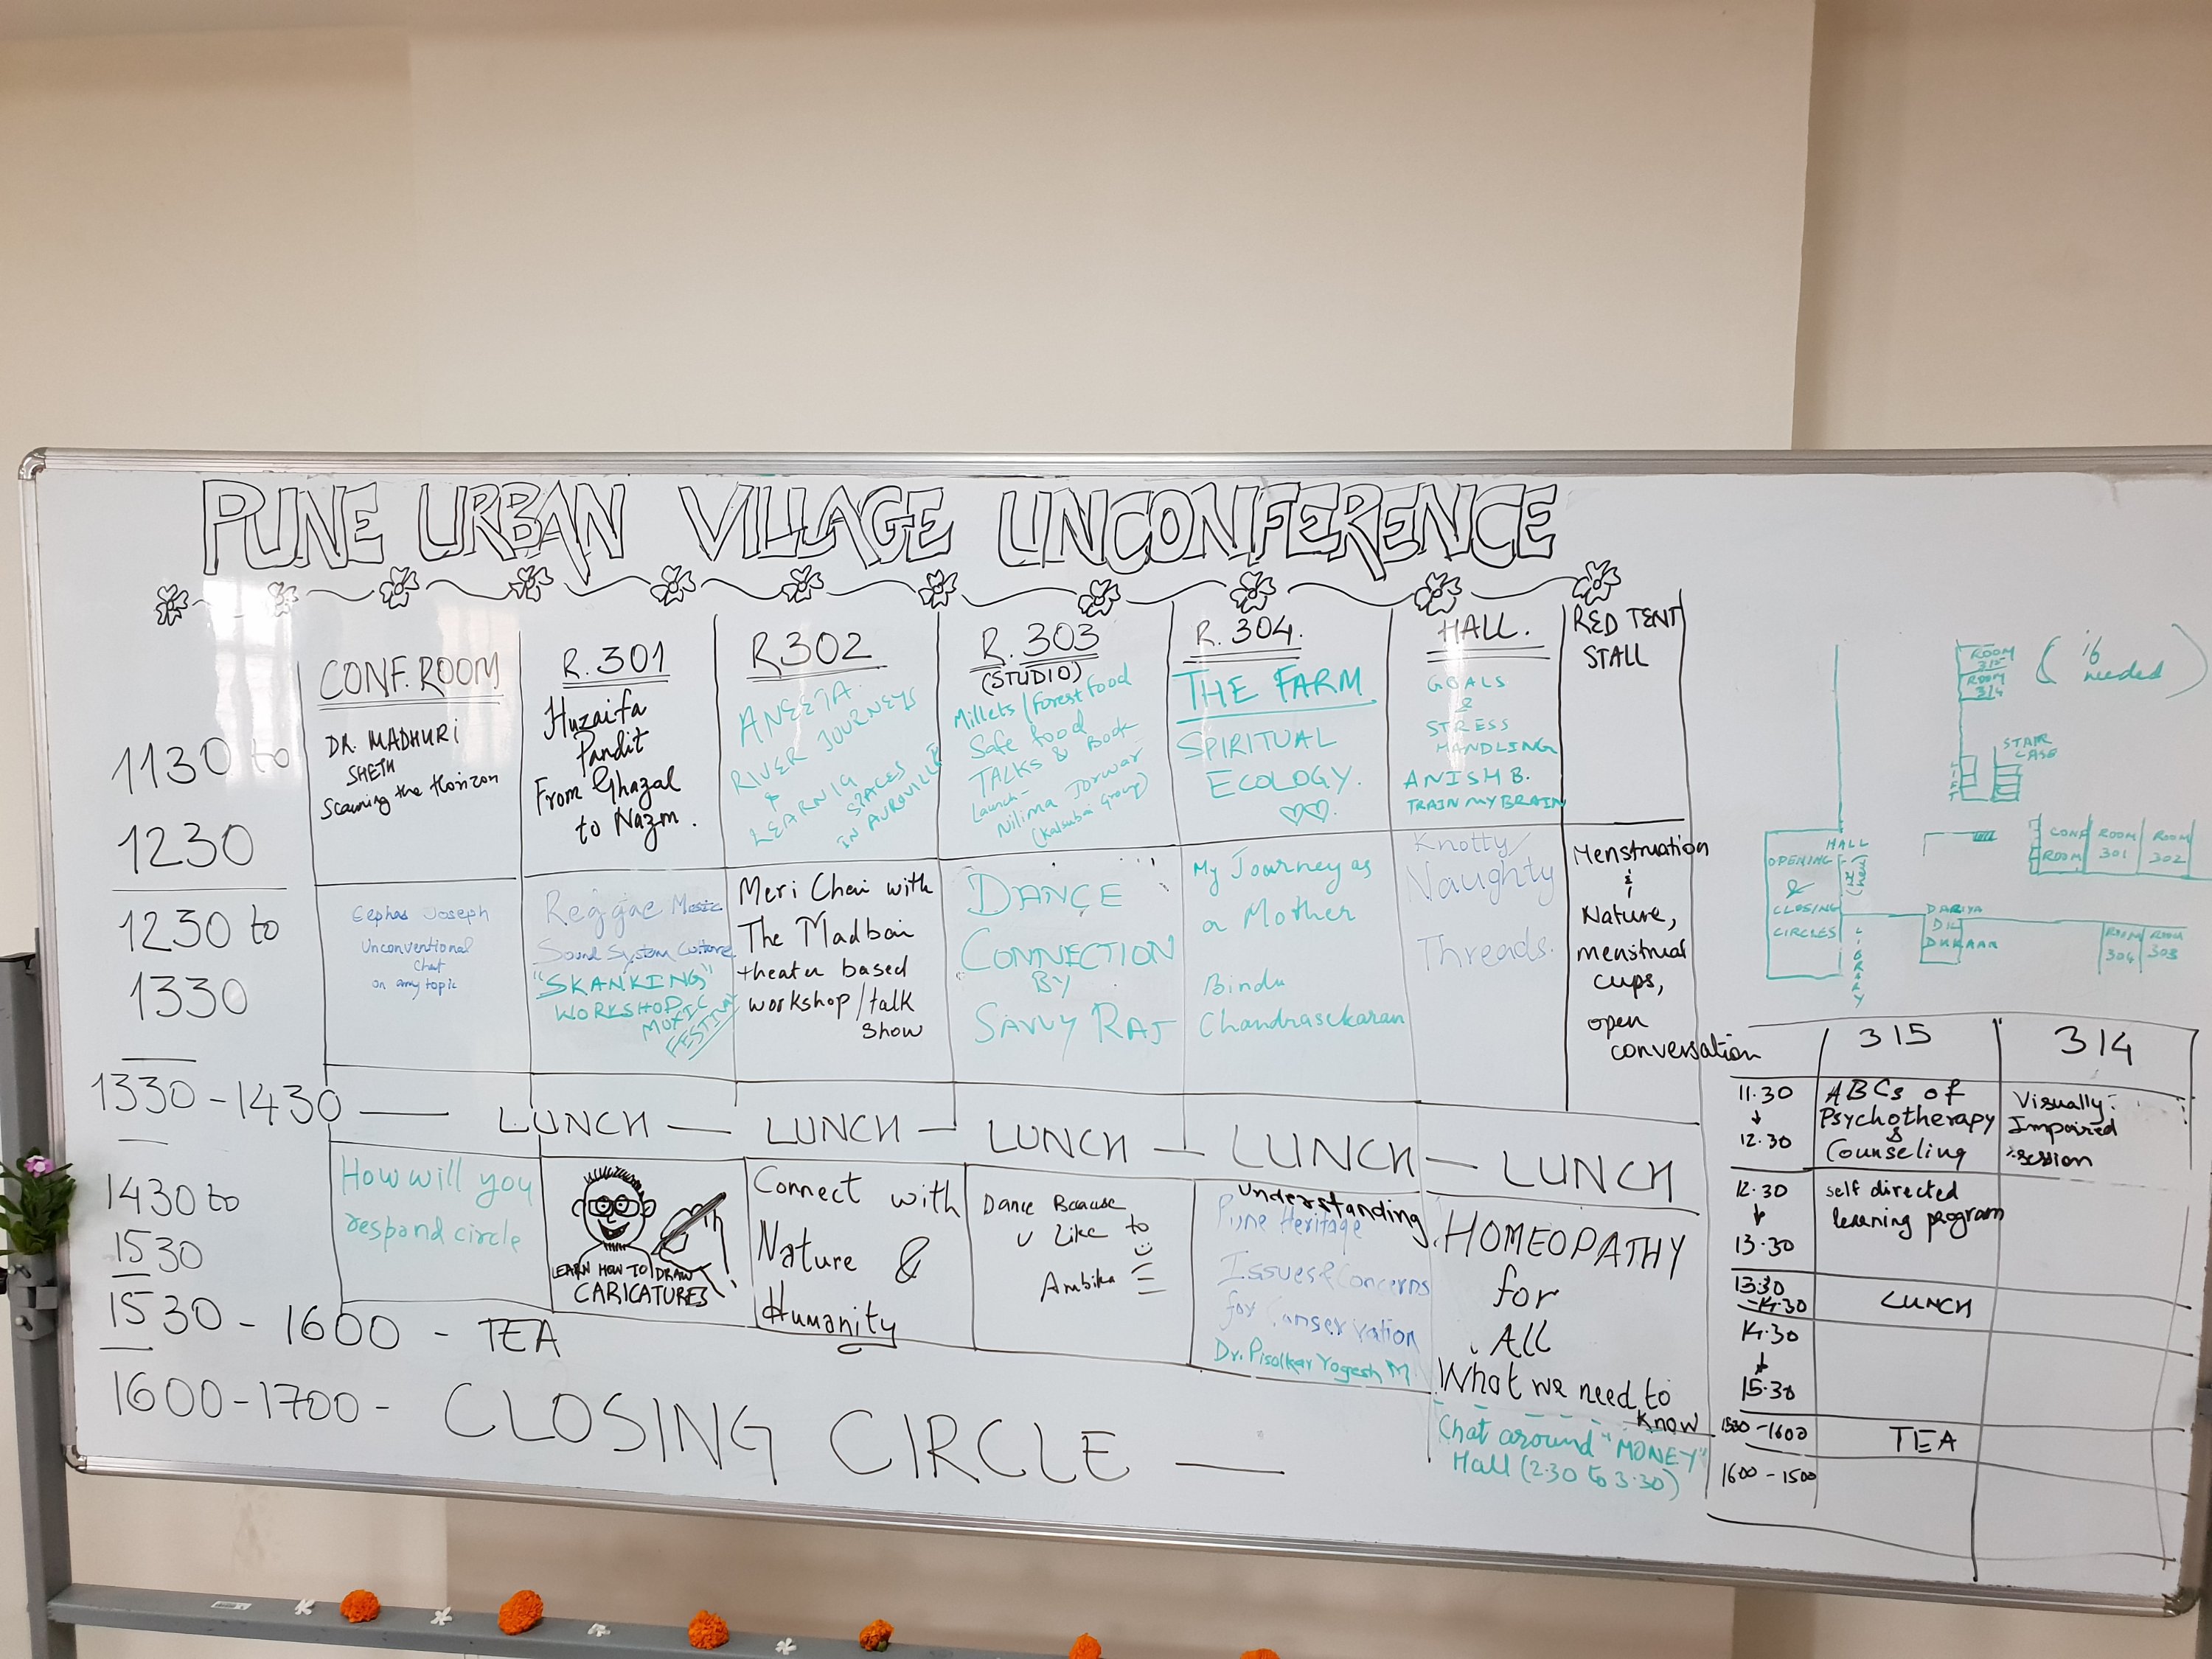 PUNE URBAN VILLAGE UNCONFERENCE
CONF. ROOM
R. 301
R302
R. 303
(STUDIO)
R. 304.
HALL.
RED TENT
STALL
1130 to
1230
DR. MADHURI
SHETH
Scanning the Horizon
Huzaifa
Pandit
From Ghazal
to Nazm.
ANEETA.
RIVER JOURNEYS
&
LEARNIG
SPACES
IN AUROVILLE
Millets/Forest food
Safe food
TALKS & Book
Launch-
Nilima Jorwar
(Kalsubai Group)
THE FARM
SPIRITUAL
ECOLOGY.
GOALS
&
STRESS
HANDLING
ANISH B.
TRAIN MY BRAIN
1230 to
1330
Cephas Joseph
Unconventional
Chat
on any topic
Reggae Music
Sound System Culture
"SKANKING"
WORKSHOP
MUSIC
FESTIVAL
Meri Chai with
The Madbai
theater based
workshop/talk
show
DANCE
CONNECTION
BY
SAVVY RAJ
My Journey as
a Mother
Bindu
Chandrasekaran
Knotty/
Naughty
Threads.
Menstruation
&
Nature,
menstrual
cups,
open
conversation
1330 - 1430 — LUNCH — LUNCH — LUNCH — LUNCH — LUNCH
1430 to
1530
How will you
respond circle
LEARN HOW TO DRAW
CARICATURES
Connect with
Nature &
Humanity
Dance Because
U Like to
Ambika
Understanding
Pune Heritage
Issues & Concerns
for Conservation
Dr. Pisolkar Yogesh M
HOMEOPATHY
for
All
What we need to
know
Chat around "MONEY"
Hall (2.30 to 3.30)
1530 - 1600 - TEA
1600 - 1700 - CLOSING CIRCLE —
ROOM
315
ROOM
314
(if
needed)
STAIR
CASE
LIFT
HALL
(here)
OPENING
&
CLOSING
CIRCLES
LIBRARY
DARIYA
DIL
DUKAAN
CONF
ROOM
ROOM
301
ROOM
302
ROOM
304
ROOM
303
315
314
11.30
12.30
ABCs of
Psychotherapy
&
Counseling
Visually-
Impaired
session
12.30
13.30
self directed
learning program
13.30
-14.30
LUNCH
14.30
15.30
-1600
TEA
1600 - 1500